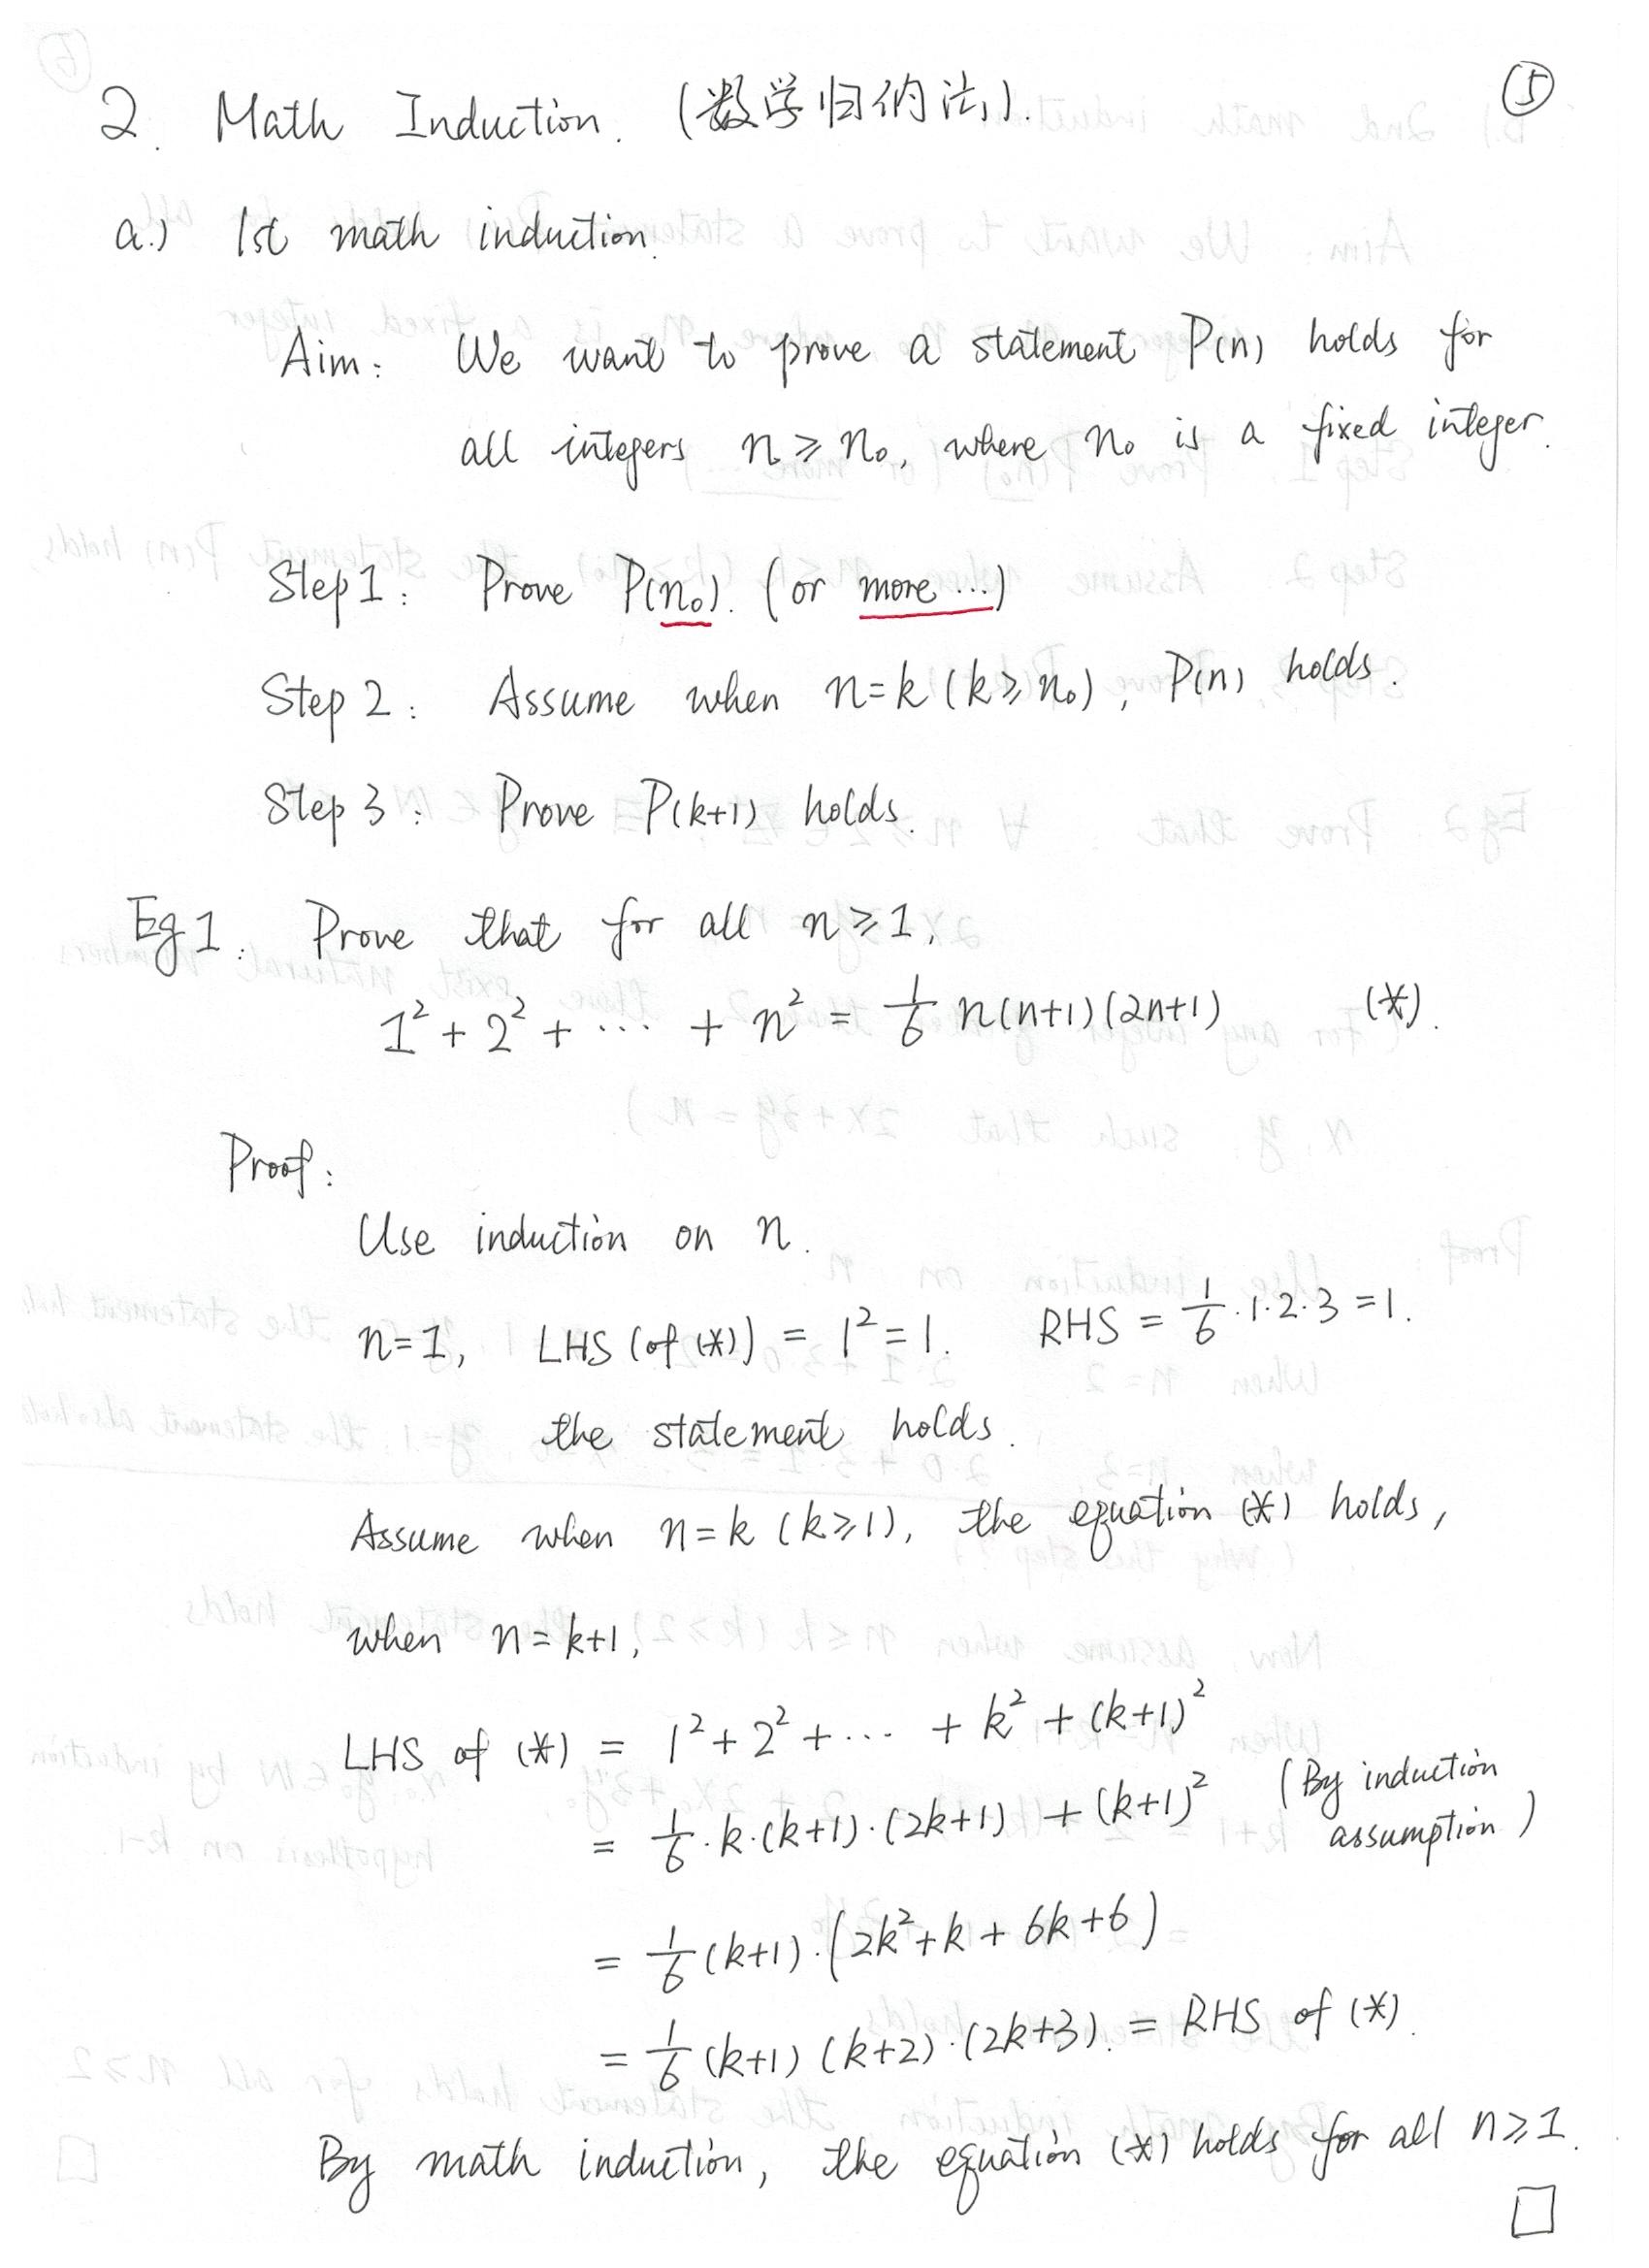 ⑤
2. Math Induction. (数学归纳法).
a.) 1st math induction.
Aim: We want to prove a statement P(n) holds for
all integers n ≥ n₀, where n₀ is a fixed integer.
Step 1: Prove P(n₀). (or more ...)
Step 2: Assume when n=k (k≥n₀), P(n) holds.
Step 3: Prove P(k+1) holds.
Eg 1. Prove that for all n ≥ 1,
1² + 2² + ··· + n² = 1/6 n(n+1)(2n+1) (*).
Proof:
Use induction on n.
n=1, LHS (of (*)) = 1² = 1. RHS = 1/6 · 1·2·3 = 1.
the statement holds.
Assume when n=k (k≥1), the equation (*) holds,
when n=k+1,
LHS of (*) = 1² + 2² + ··· + k² + (k+1)²
= 1/6 · k·(k+1)·(2k+1) + (k+1)² (By induction
assumption)
= 1/6 (k+1)·(2k²+k+6k+6)
= 1/6 (k+1)(k+2)·(2k+3). = RHS of (*).
By math induction, the equation (*) holds for all n≥1.
□